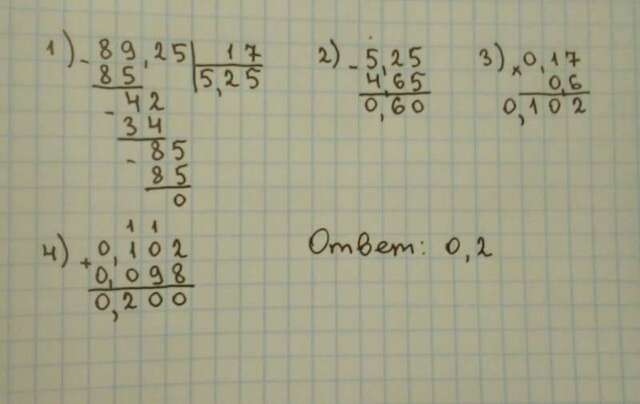 1) - 89,25 | 17
85 | 5,25
- 42
34
- 85
85
0
2) - 5,25
4,65
0,60
3) × 0,17
0,6
0,102
1 1
4) + 0,102
0,098
0,200
Ответ: 0,2